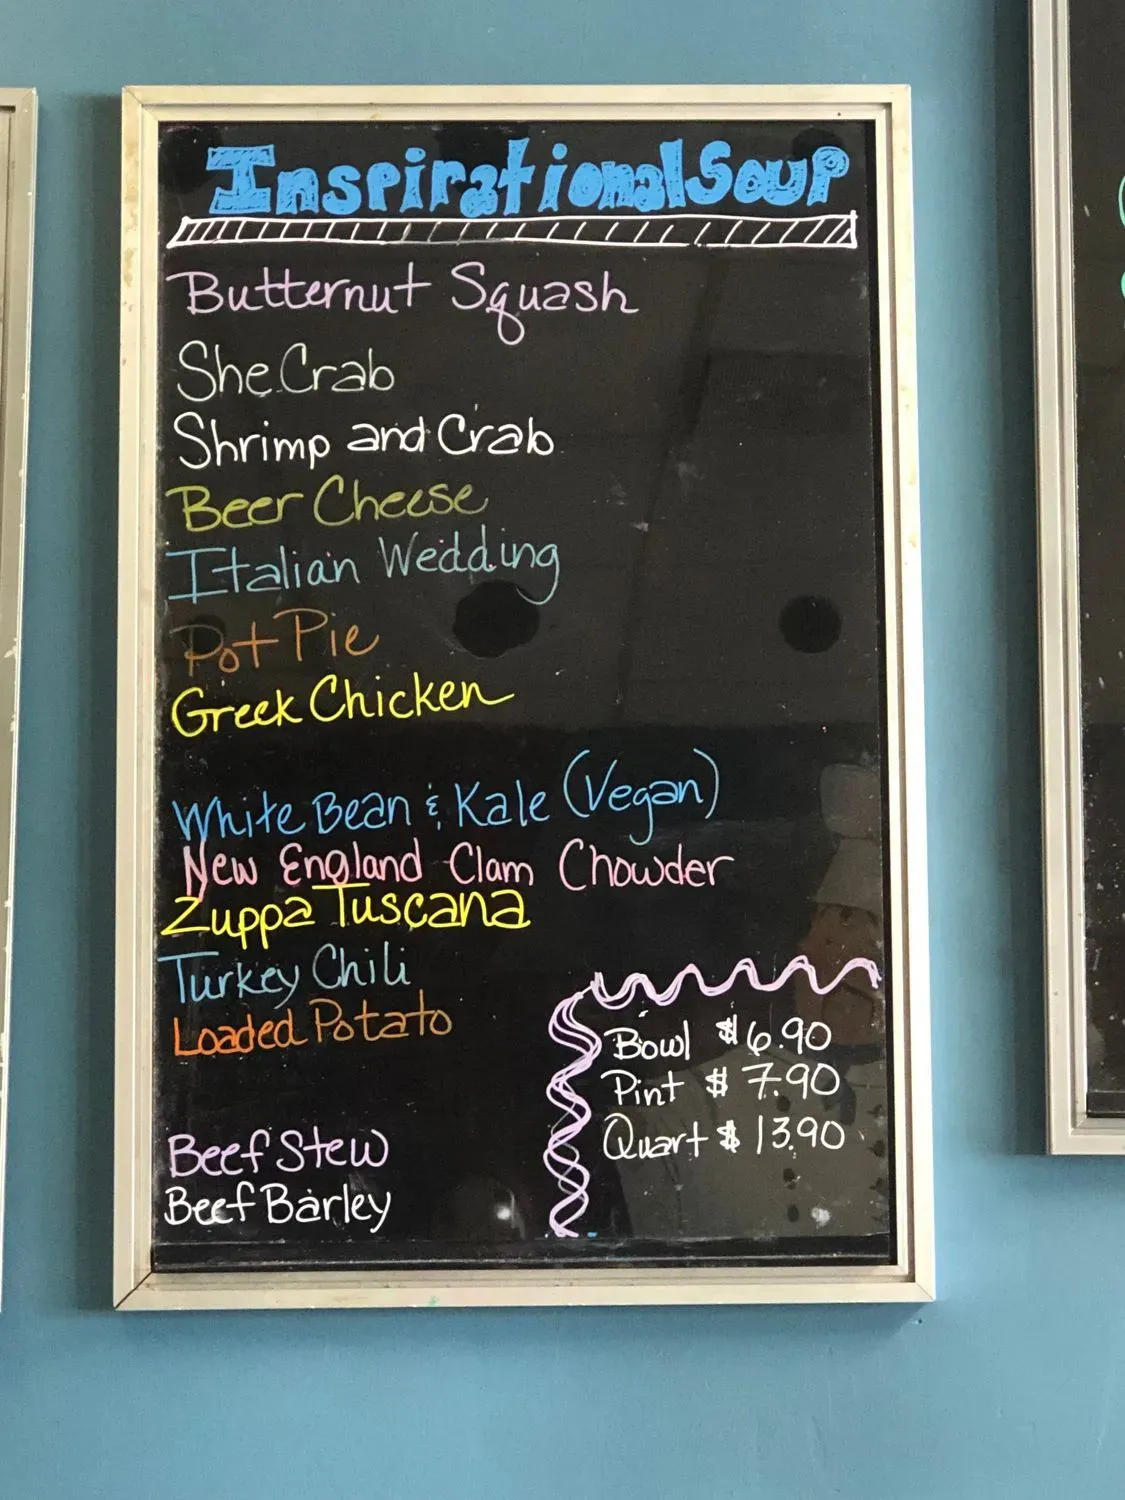 Inspirational Soup
Butternut Squash
She Crab
Shrimp and Crab
Beer Cheese
Italian Wedding
Pot Pie
Greek Chicken
White Bean & Kale (Vegan)
New England Clam Chowder
Zuppa Tuscana
Turkey Chili
Loaded Potato
Bowl $6.90
Pint $7.90
Quart $13.90
Beef Stew
Beef Barley